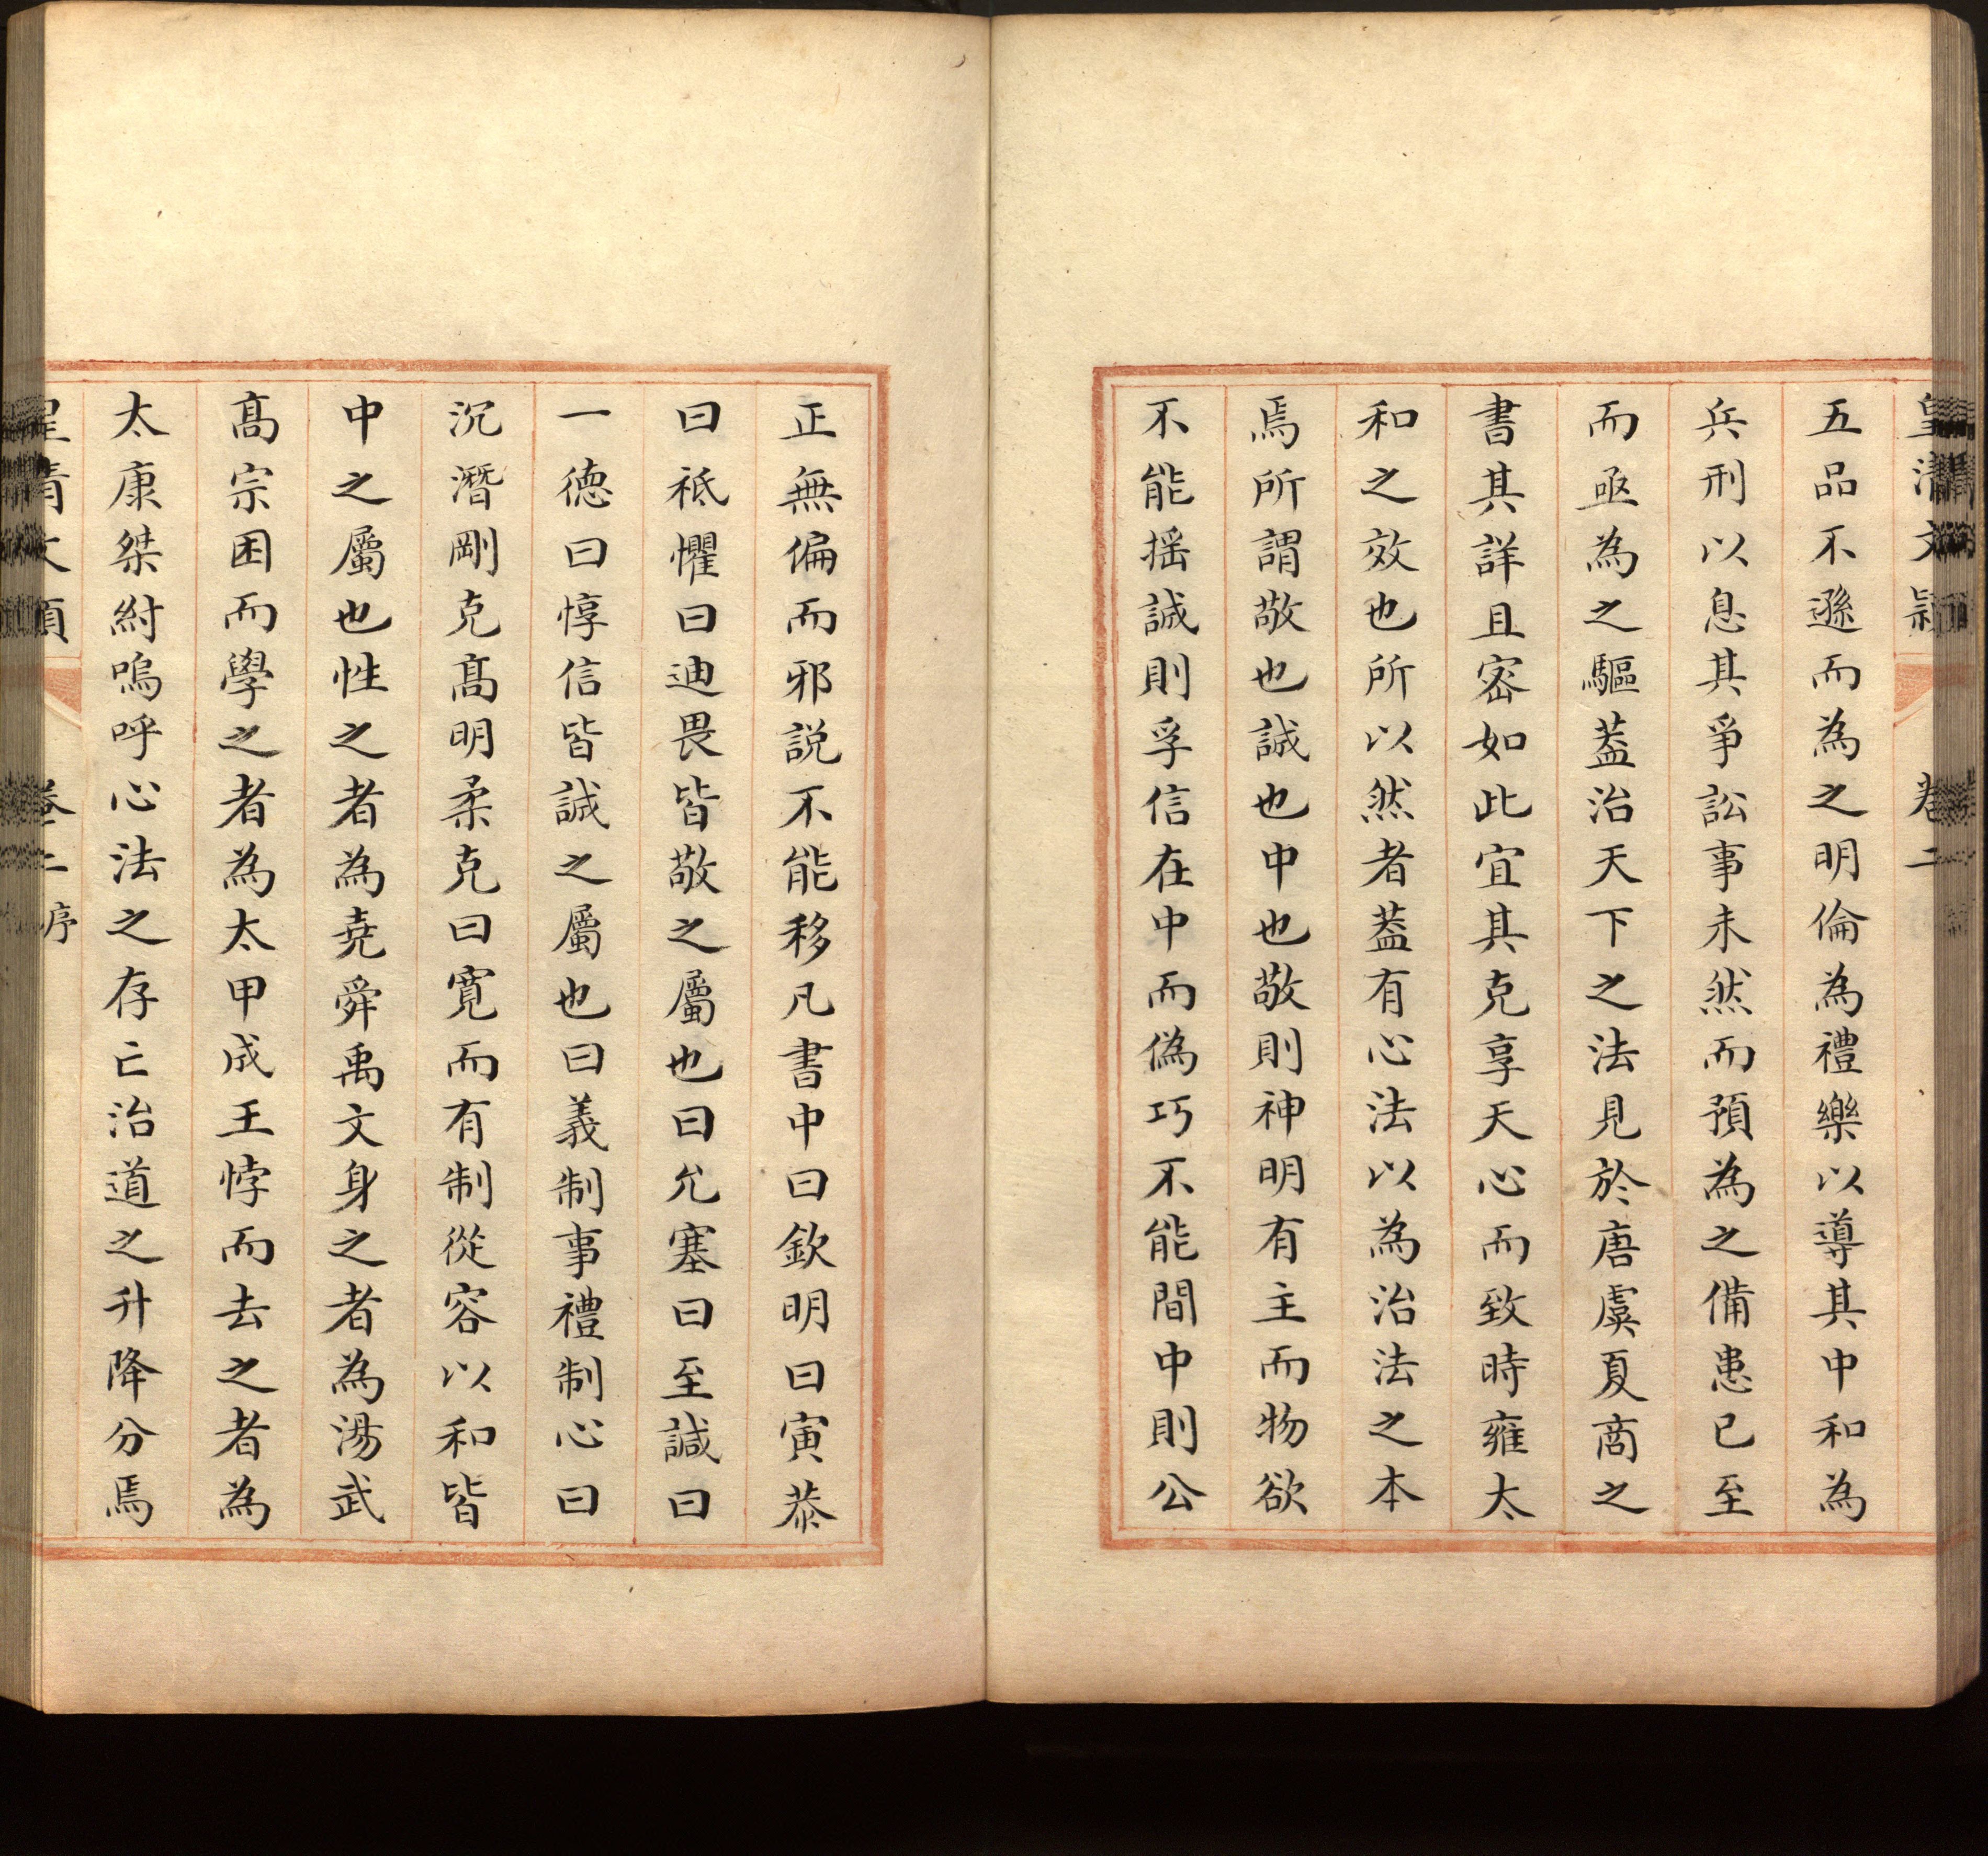 皇清文穎 卷二
五品不遜而為之明倫為禮樂以導其中和為
兵刑以息其爭訟事未然而預為之備患已至
而亟為之驅蓋治天下之法見於唐虞夏商之
書其詳且宻如此宜其克享天心而致時雍太
和之效也所以然者蓋有心法以為治法之本
焉所謂敬也誠也中也敬則神明有主而物欲
不能揺誠則孚信在中而偽巧不能間中則公
正無偏而邪説不能移凡書中曰欽明曰寅恭
曰祗懼曰迪畏皆敬之屬也曰允塞曰至諴曰
一德曰惇信皆誠之屬也曰義制事禮制心曰
沉潛剛克髙明柔克曰寛而有制從容以和皆
中之屬也性之者為堯舜禹文身之者為湯武
髙宗困而學之者為太甲成王悖而去之者為
太康桀紂嗚呼心法之存亡治道之升降分焉
皇清文穎 卷二 序